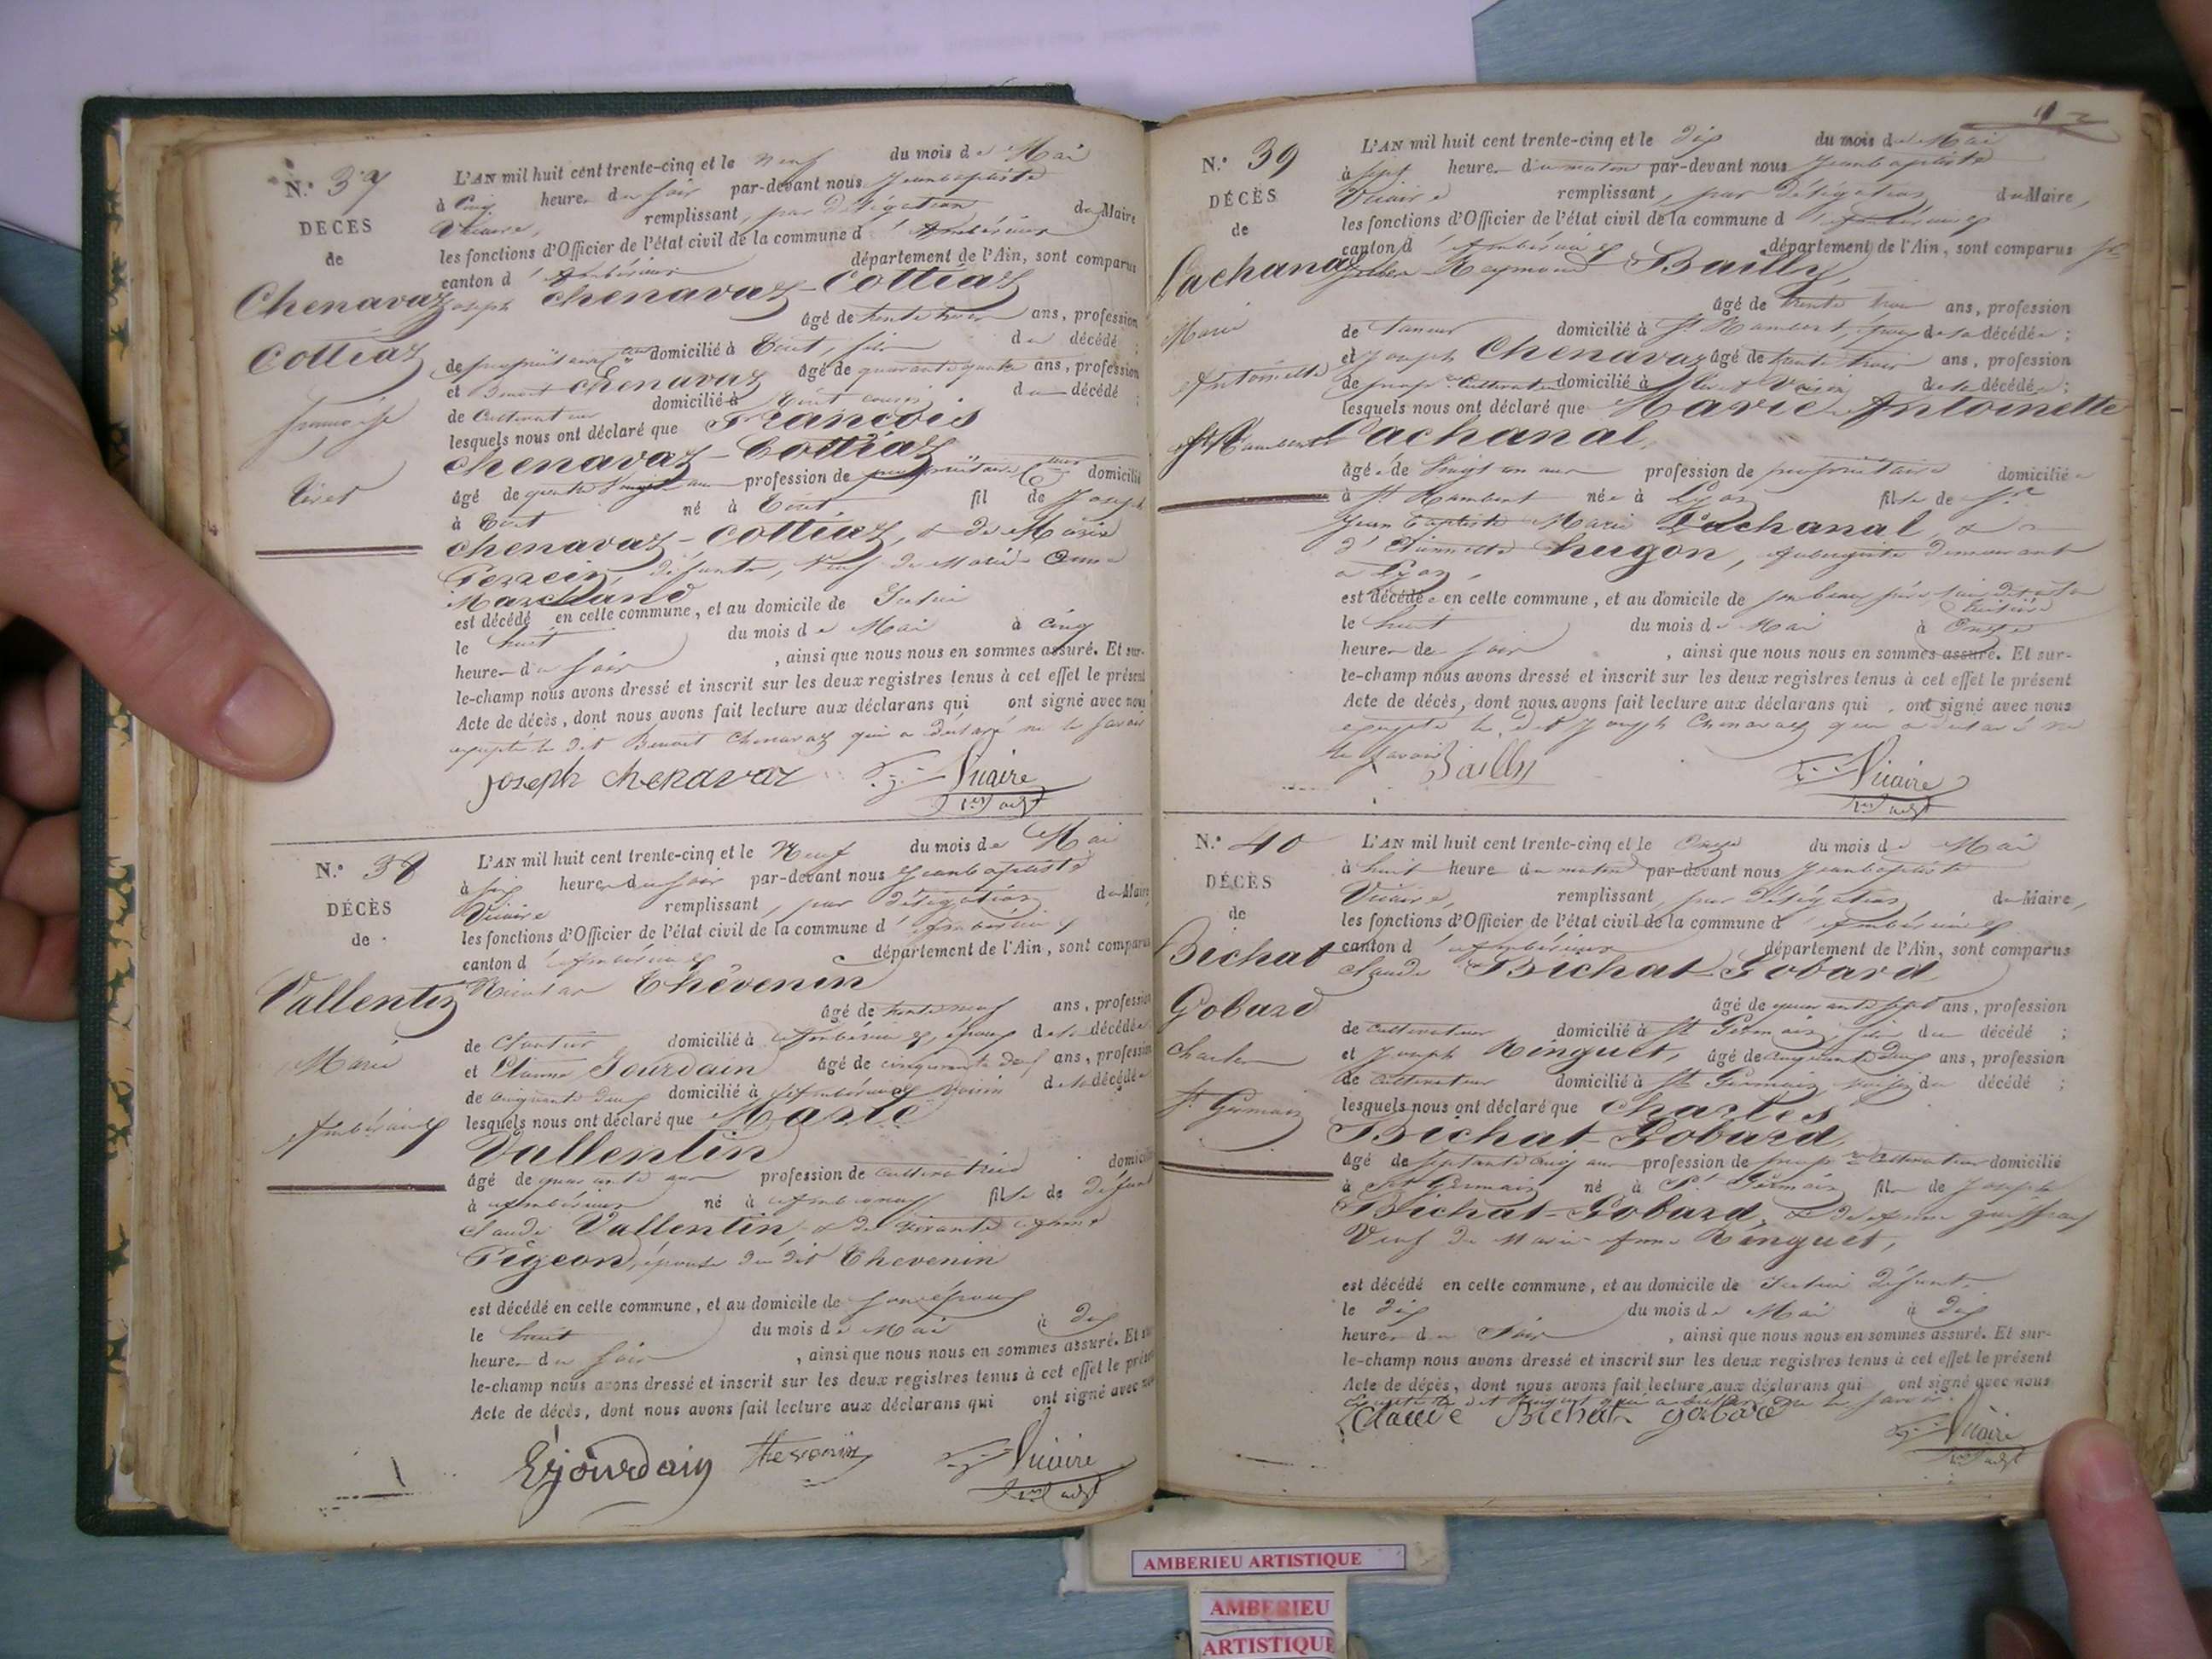 N.° 37
DÉCÈS
de
Chenavaz
Cottiaz
françois
Tiret
L'AN mil huit cent trente-cinq et le neuf du mois de Mai
à Cinq heures du soir par-devant nous Jeanbaptiste
Vicaire, remplissant, par délégation du Maire
les fonctions d'Officier de l'état civil de la commune d'Ambérieux
canton d'Ambérieux département de l'Ain, sont comparus
Joseph Chenavaz-Cottiaz
âgé de trente trois ans, profession
de propriétaire domicilié à Tiret, fils du décédé ;
et Benoit Chenavaz âgé de quarante quatre ans, profession
de Cultivateur domicilié à Tiret cousin du décédé ;
lesquels nous ont déclaré que François
Chenavaz-Cottiaz
âgé de quatre vingt un ans profession de propriétaire domicilié
à Tiret né à Tiret fils de Joseph
Chenavaz-Cottiaz, & de Marie
Perrein, défunts, Veuf de Marie-Anne
Marchand
est décédé en cette commune, et au domicile de Icelui
le huit du mois de Mai à Cinq
heures du soir, ainsi que nous nous en sommes assuré. Et sur-
le-champ nous avons dressé et inscrit sur les deux registres tenus à cet effet le présent
Acte de décès, dont nous avons fait lecture aux déclarans qui ont signé avec nous
excepté le dit Benoit Chenavaz qui a déclaré ne le savoir
Joseph Chenavaz Vicaire
1er adjt
N.° 38
DÉCÈS
de
Vallentin
Marie
Ambérieux
L'AN mil huit cent trente-cinq et le Neuf du mois de Mai
à six heures du soir par-devant nous Jeanbaptiste
Vicaire remplissant, par délégation du Maire
les fonctions d'Officier de l'état civil de la commune d'Ambérieux
canton d'Ambérieux département de l'Ain, sont comparus
Nicolas Thévenin
âgé de trente neuf ans, profession
de domicilié à Ambérieux, époux de la décédée
et Etienne Jourdain âgé de cinquante deux ans, profession
de cinquante deux domicilié à Ambérieux Voisin de la décédée
lesquels nous ont déclaré que Marie
Vallentin
âgé de quarante ans profession de cultivatrice domicilié
à Ambérieux né à Ambérieux fille de défunt
Claude Vallentin, & de vivante Anne
Pigeon, épouse du dit Thevenin
est décédé en cette commune, et au domicile de son époux
le huit du mois de Mai à dix
heures du soir, ainsi que nous nous en sommes assuré. Et sur
le-champ nous avons dressé et inscrit sur les deux registres tenus à cet effet le présent
Acte de décès, dont nous avons fait lecture aux déclarans qui ont signé avec nous
Ejourdain Thevenin Vicaire
1er adjt
N.° 39
DÉCÈS
de
Lachanal
Marie
Antoinette
St Rambert
L'AN mil huit cent trente-cinq et le dix du mois de Mai
à sept heures du matin par-devant nous Jeanbaptiste
Vicaire remplissant, par délégation du Maire,
les fonctions d'Officier de l'état civil de la commune d'Ambérieux
canton d'Ambérieux département de l'Ain, sont comparus Sr
Reymond Bailly,
âgé de trente trois ans, profession
de Taneur domicilié à St Rambert, époux de la décédée ;
et Joseph Chenavaz âgé de trente trois ans, profession
de propre Cultivateur domicilié à Voisin de la décédée ;
lesquels nous ont déclaré que Marie Antoinette
Lachanal,
âgée de Vingt un ans profession de propriétaire domiciliée
à St Rambert née à Lyon fille de Sr
Jean Baptiste Marie Lachanal, &
d'Etiennette hugon, Aubergiste demeurant
à Lyon,
est décédée en cette commune, et au domicile de son beau père
le huit du mois de Mai à Onze
heures du soir, ainsi que nous nous en sommes assuré. Et sur-
le-champ nous avons dressé et inscrit sur les deux registres tenus à cet effet le présent
Acte de décès, dont nous avons fait lecture aux déclarans qui ont signé avec nous
excepté le dit Joseph Chenavaz qui a déclaré ne
le savoir
Bailly Vicaire
1er adjt
N.° 40
DÉCÈS
de
Bichat
Gobard
Charles
St Germain
L'AN mil huit cent trente-cinq et le Onze du mois de Mai
à huit heures du matin par-devant nous Jeanbaptiste
Vicaire, remplissant, par délégation du Maire,
les fonctions d'Officier de l'état civil de la commune d'Ambérieux
canton d'Ambérieux département de l'Ain, sont comparus
Claude Bichat-Gobard
âgé de quarante sept ans, profession
de cultivateur domicilié à St Germain fils du décédé ;
et Joseph Ringuet, âgé de cinquante deux ans, profession
de cultivateur domicilié à St Germain voisin du décédé ;
lesquels nous ont déclaré que Charles
Bichat-Gobard,
âgé de septante cinq ans profession de propre Cultivateur domicilié
à St Germain né à St Germain fils de Joseph
Bichat-Gobard, & de Anne
Veuf de Marie-Anne Ringuet,
est décédé en cette commune, et au domicile de Icelui défunt
le dix du mois de Mai à dix
heures du Soir, ainsi que nous nous en sommes assuré. Et sur-
le-champ nous avons dressé et inscrit sur les deux registres tenus à cet effet le présent
Acte de décès, dont nous avons fait lecture aux déclarans qui ont signé avec nous
excepté le dit Ringuet qui a déclaré ne le savoir.
Claude Bichat gobard Vicaire
1er adjt
AMBERIEU ARTISTIQUE
AMBERIEU
ARTISTIQUE